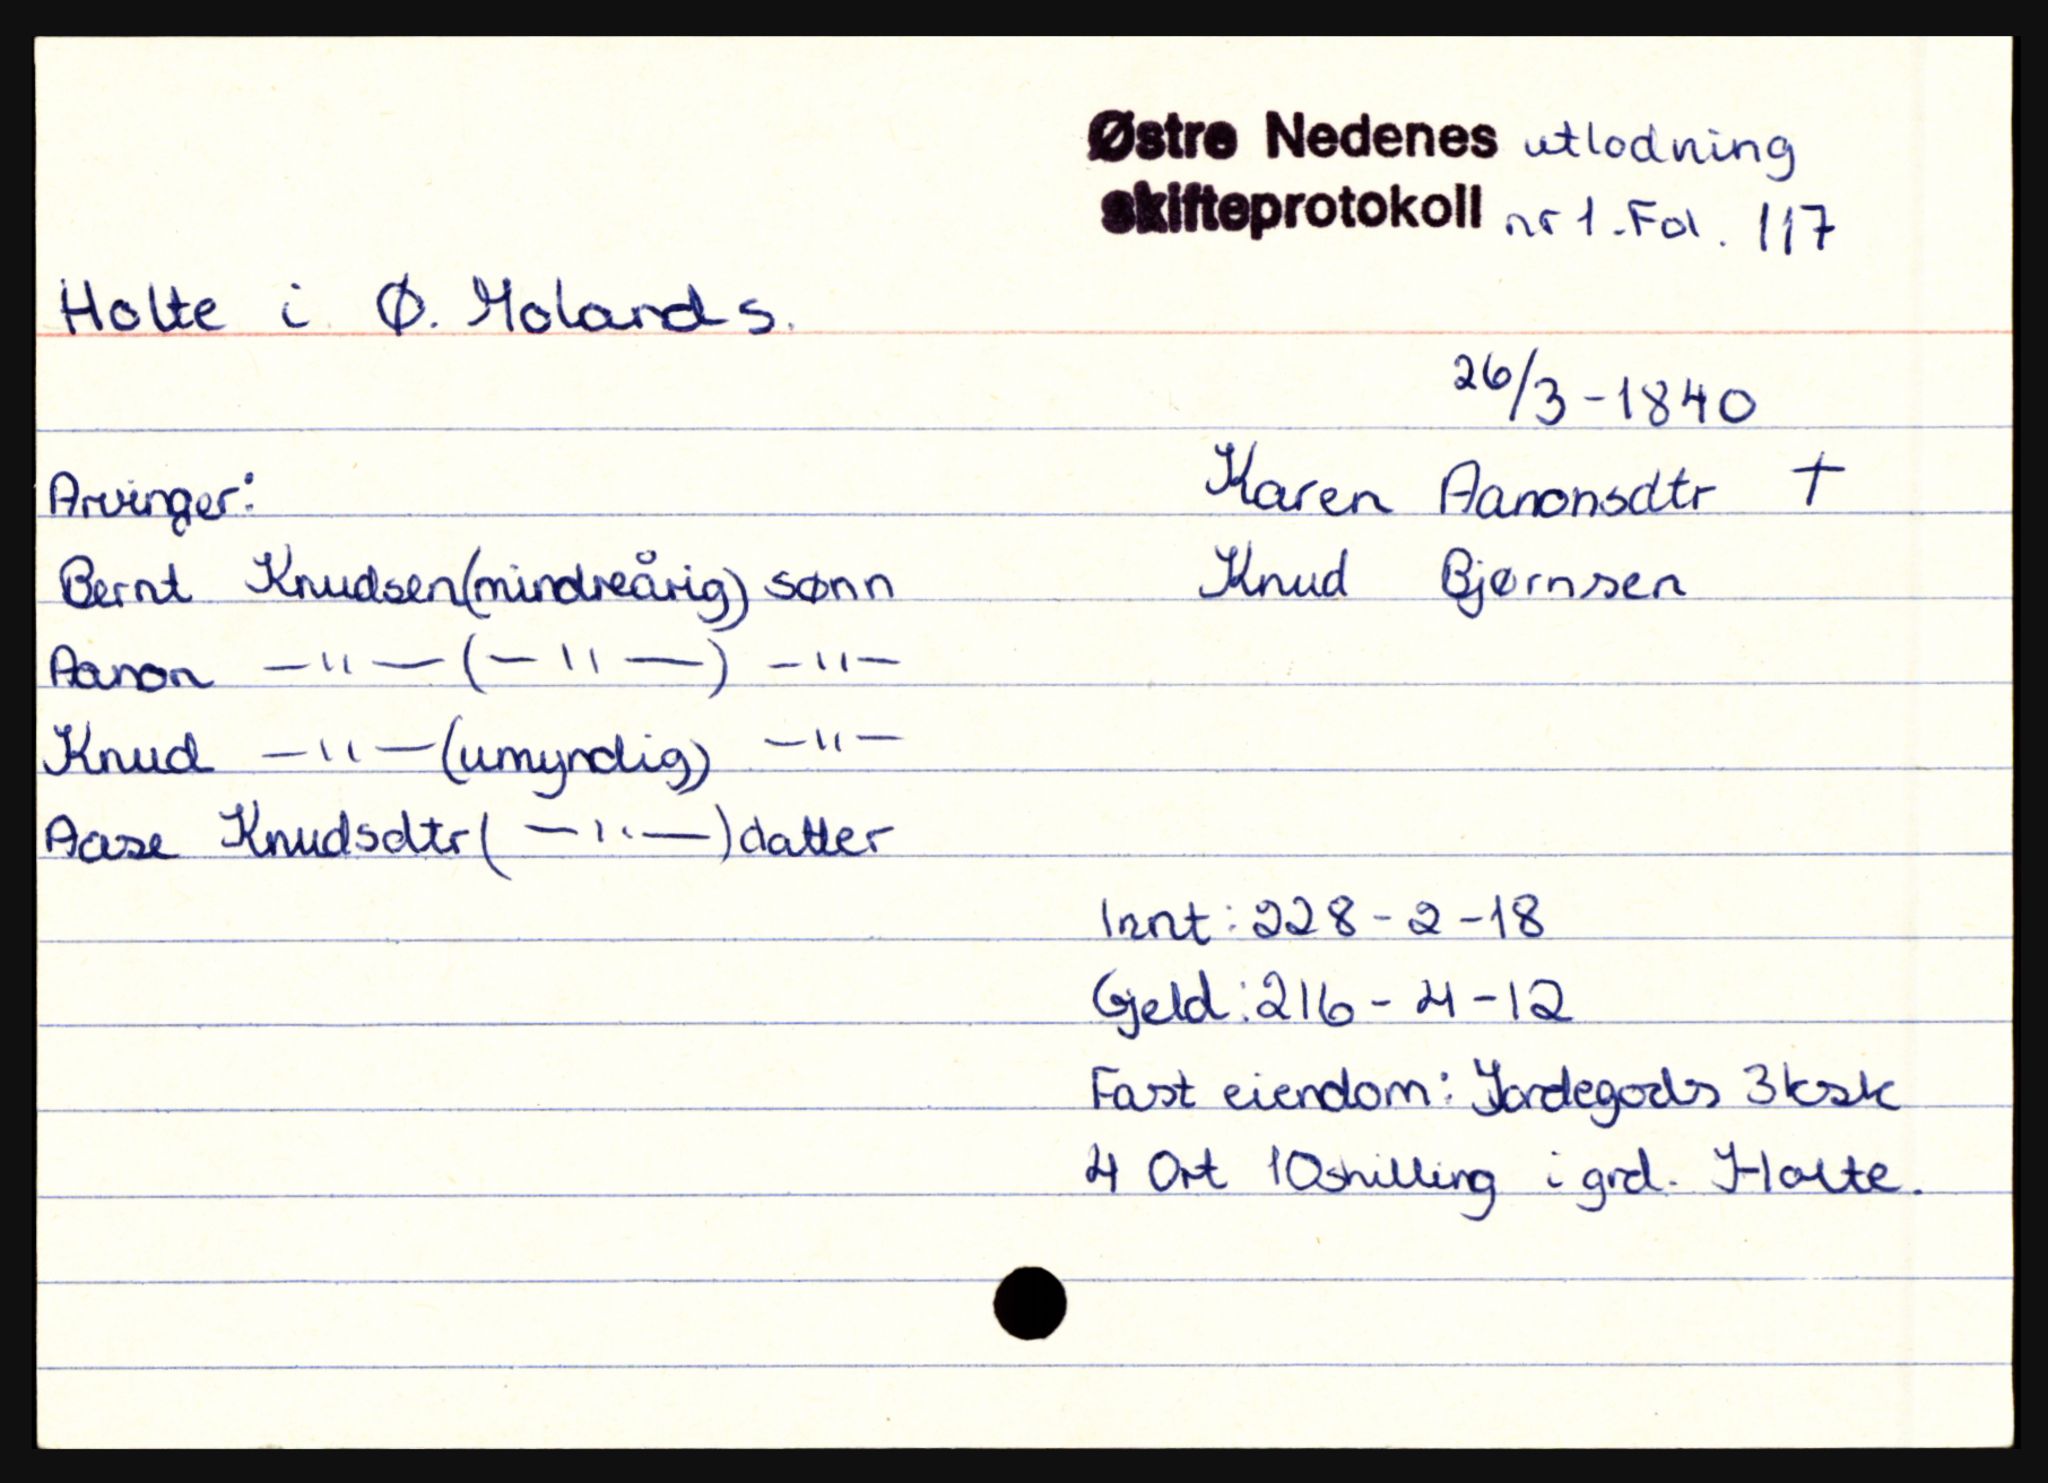 Østre Nedenes utlodning
skifteprotokoll nr 1. Fol. 117
Holte i Ø. Molands.
26/3-1840
Arvinger: Karen Aanonsdtr †
Bernt Knudsen (mindreårig) sønn Knud Bjørnsen
Aanon —"— (—"—) —"—
Knud —"— (umyndig) —"—
Aase Knudsdtr (—"—) datter
Innt: 228-2-18
Gjeld: 216-4-12
Fast eiendom: Jordegods 3 ksk
4 Ort 10 shilling i grd. Holte.